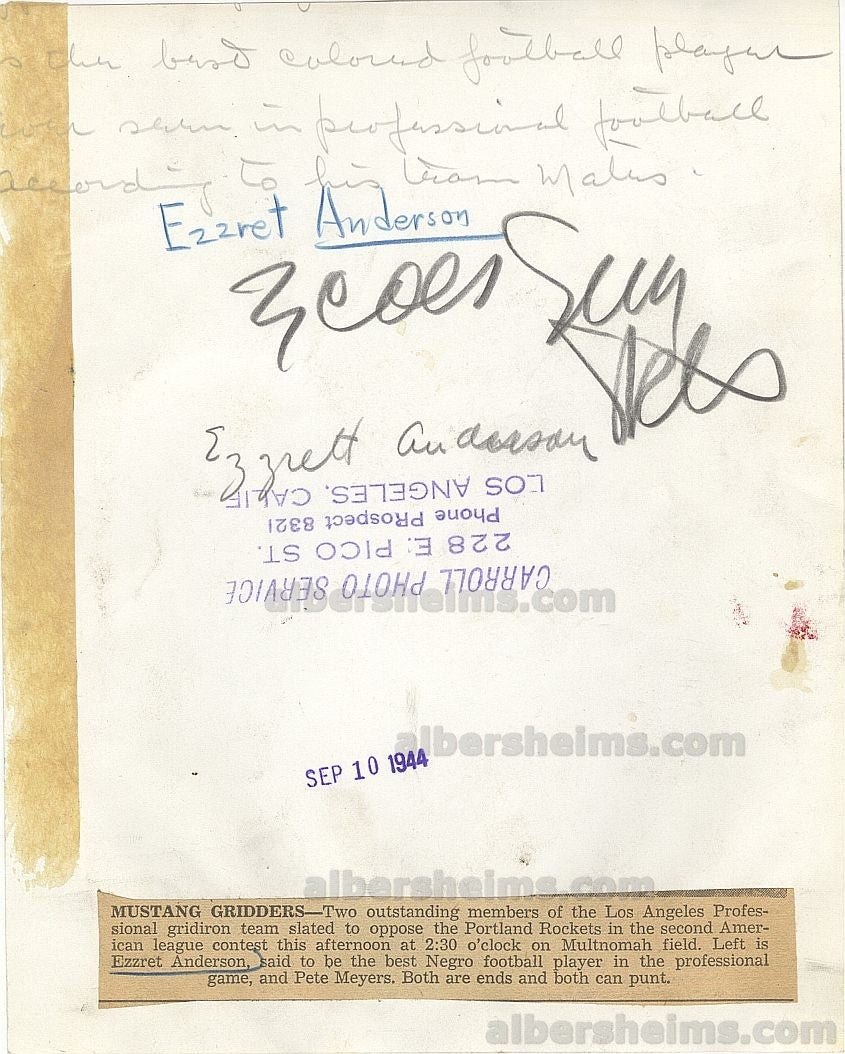 s the best colored football player
ever seen in professional football
according to his team mates.
Ezzret Anderson
3 cols Sun
Ezzrett Anderson
LOS ANGELES, CALIF.
Phone PRospect 8321
228 E. PICO ST.
CARROLL PHOTO SERVICE
albersheims.com
albersheims.com
SEP 10 1944
albersheims.com
MUSTANG GRIDDERS—Two outstanding members of the Los Angeles Profes-
sional gridiron team slated to oppose the Portland Rockets in the second Amer-
ican league contest this afternoon at 2:30 o'clock on Multnomah field. Left is
Ezzret Anderson, said to be the best Negro football player in the professional
game, and Pete Meyers. Both are ends and both can punt.
albersheims.com